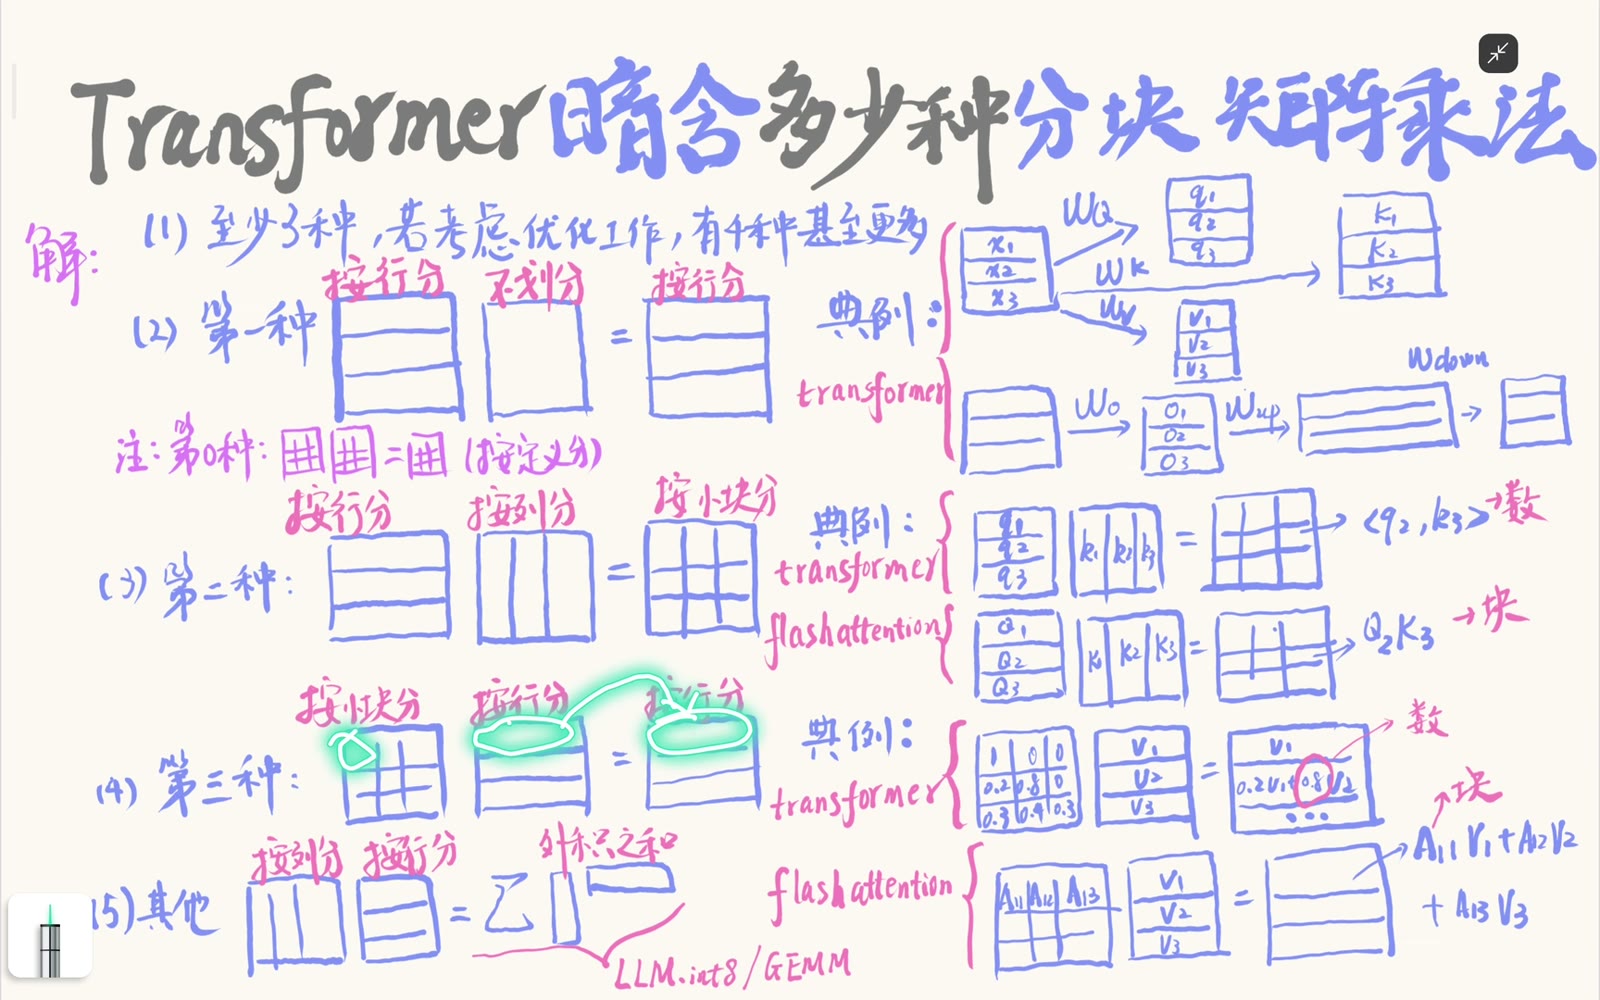 Transformer暗含多少种分块矩阵乘法
解:
(1) 至少3种,若考虑优化工作,有4种甚至更多
(2) 第一种
按行分 不划分 = 按行分
典例:
transformer
x1
x2
x3
WQ
q1
q2
q3
WK
K1
K2
K3
WV
V1
V2
V3
WO
O1
O2
O3
Wup
Wdown
注:第0种: = (按定义分)
(3) 第二种:
按行分 按列分 = 按小块分
典例:
transformer
q1
q2
q3
k1 k2 k3
=
<q2,k3>→数
flashattention
Q1
Q2
Q3
K1 K2 K3
=
Q2K3 →块
(4) 第三种:
按小块分 按行分 = 按行分
典例:
transformer
1 0 0
0.2 0.8 0
0.3 0.4 0.3
V1
V2
V3
=
V1
0.2V1+0.8V2
...
数
(5) 其他
按列分 按行分 = Σ 外积之和
LLM.int8/GEMM
flashattention
A11 A12 A13
V1
V2
V3
=
块
A11V1+A12V2
+A13V3